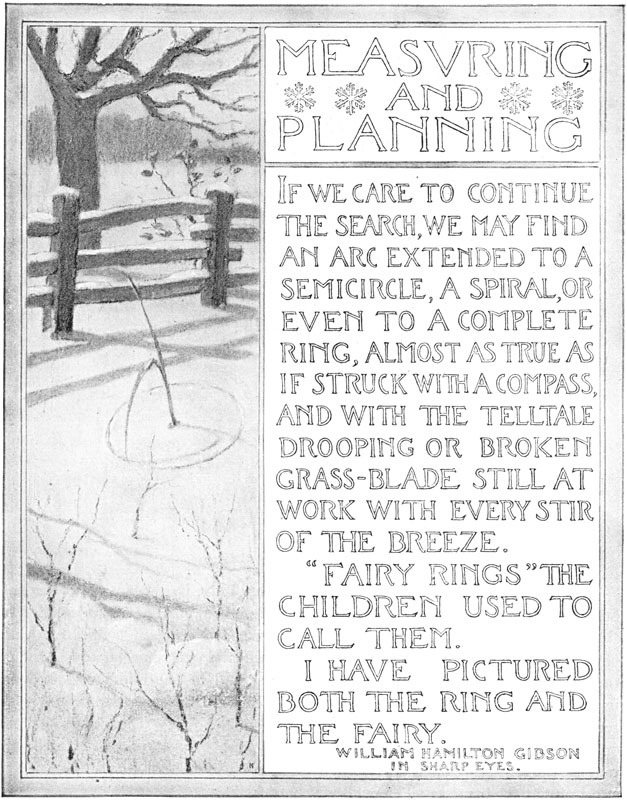 MEASVRING
AND
PLANNING
IF WE CARE TO CONTINUE
THE SEARCH, WE MAY FIND
AN ARC EXTENDED TO A
SEMICIRCLE, A SPIRAL, OR
EVEN TO A COMPLETE
RING, ALMOST AS TRUE AS
IF STRUCK WITH A COMPASS,
AND WITH THE TELLTALE
DROOPING OR BROKEN
GRASS-BLADE STILL AT
WORK WITH EVERY STIR
OF THE BREEZE.
"FAIRY RINGS" THE
CHILDREN USED TO
CALL THEM.
I HAVE PICTURED
BOTH THE RING AND
THE FAIRY.
WILLIAM HAMILTON GIBSON
IN SHARP EYES.